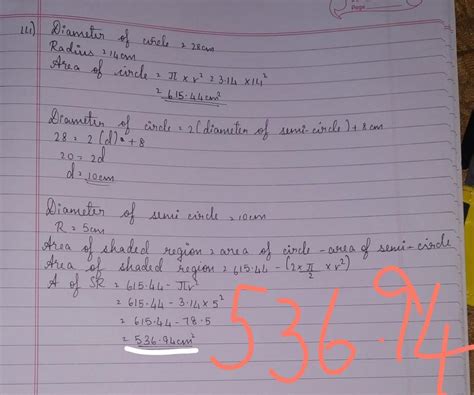 iii) Diameter of circle = 28cm
Radius = 14cm
Area of circle = π × r² = 3.14 × 14²
= 615.44cm²
Diameter of circle = 2(diameter of semi-circle) + 8cm
28 = 2(d) + 8
20 = 2d
d = 10cm
Diameter of semi circle = 10cm
R = 5cm
Area of shaded region = area of circle - area of semi-circle
Area of shaded region = 615.44 - (2×π/2 × r²)
A of SR = 615.44 - πr²
= 615.44 - 3.14 × 5²
= 615.44 - 78.5
= 536.94cm²
536.94